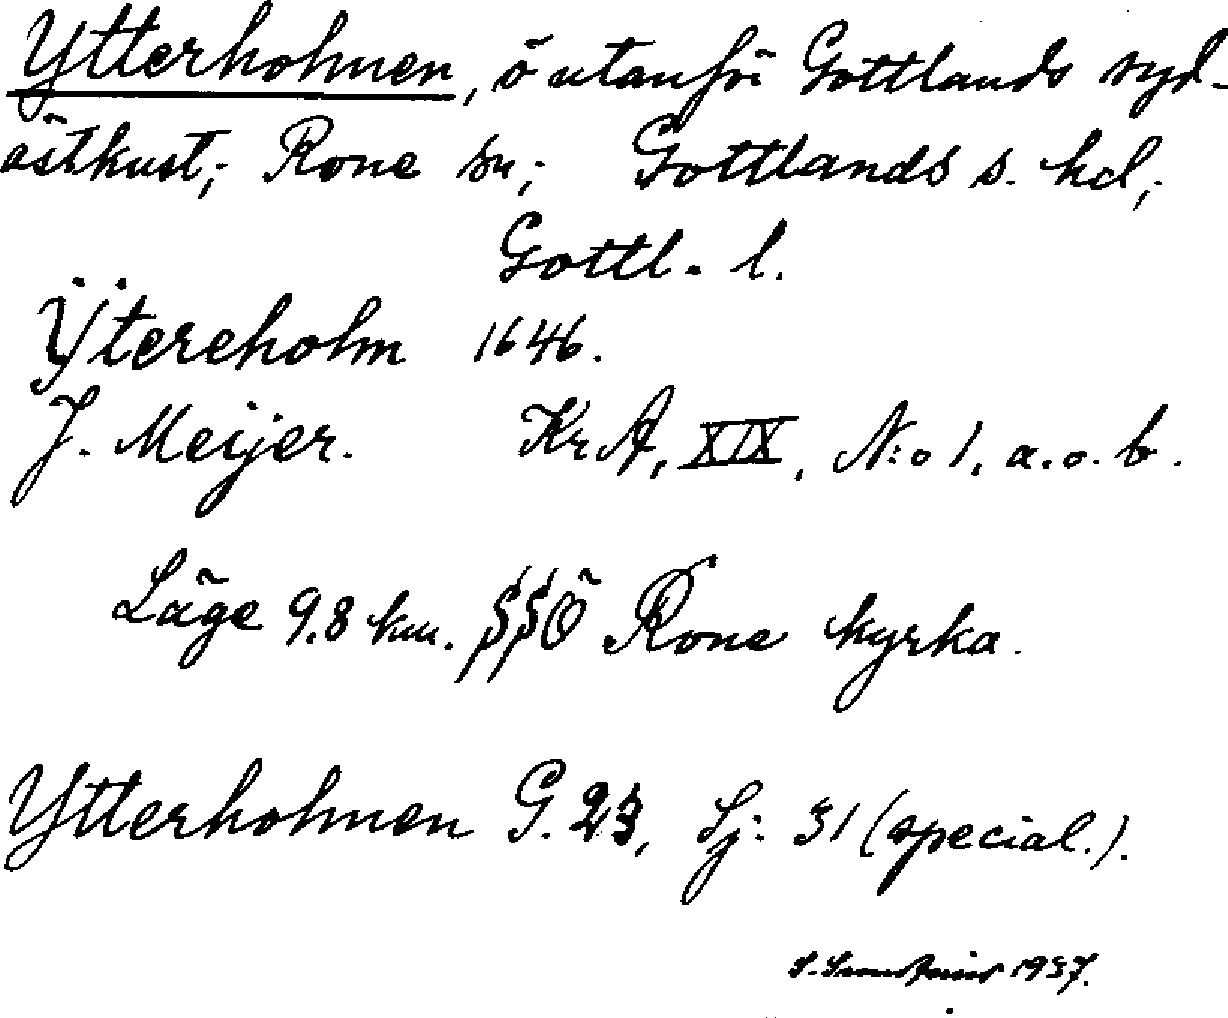 Ytterholmen, ö utanför Gottlands syd-
östkust; Rone sn; Gottlands s. hd;
Gottl. l.
Ÿtereholm 1646.
J. Meijer. KrA, XIX, N:o 1, a. o. b.
Läge 9.8 km. SSÖ Rone kyrka.
Ytterholmen G. 23, Sj: 31 (special.).
1937.